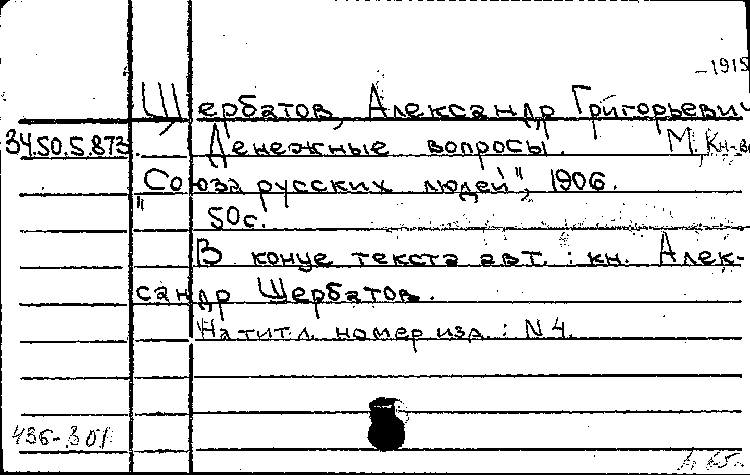 –1915
Щербатов, Александр Григорьевич
34.50.5.873. Денежные вопросы. М., Кн-во
"Союза русских людей", 1906.
50с.
В конце текста авт.: кн. Алек-
сандр Щербатов.
На титл. номер изд.: N 4.
436-301